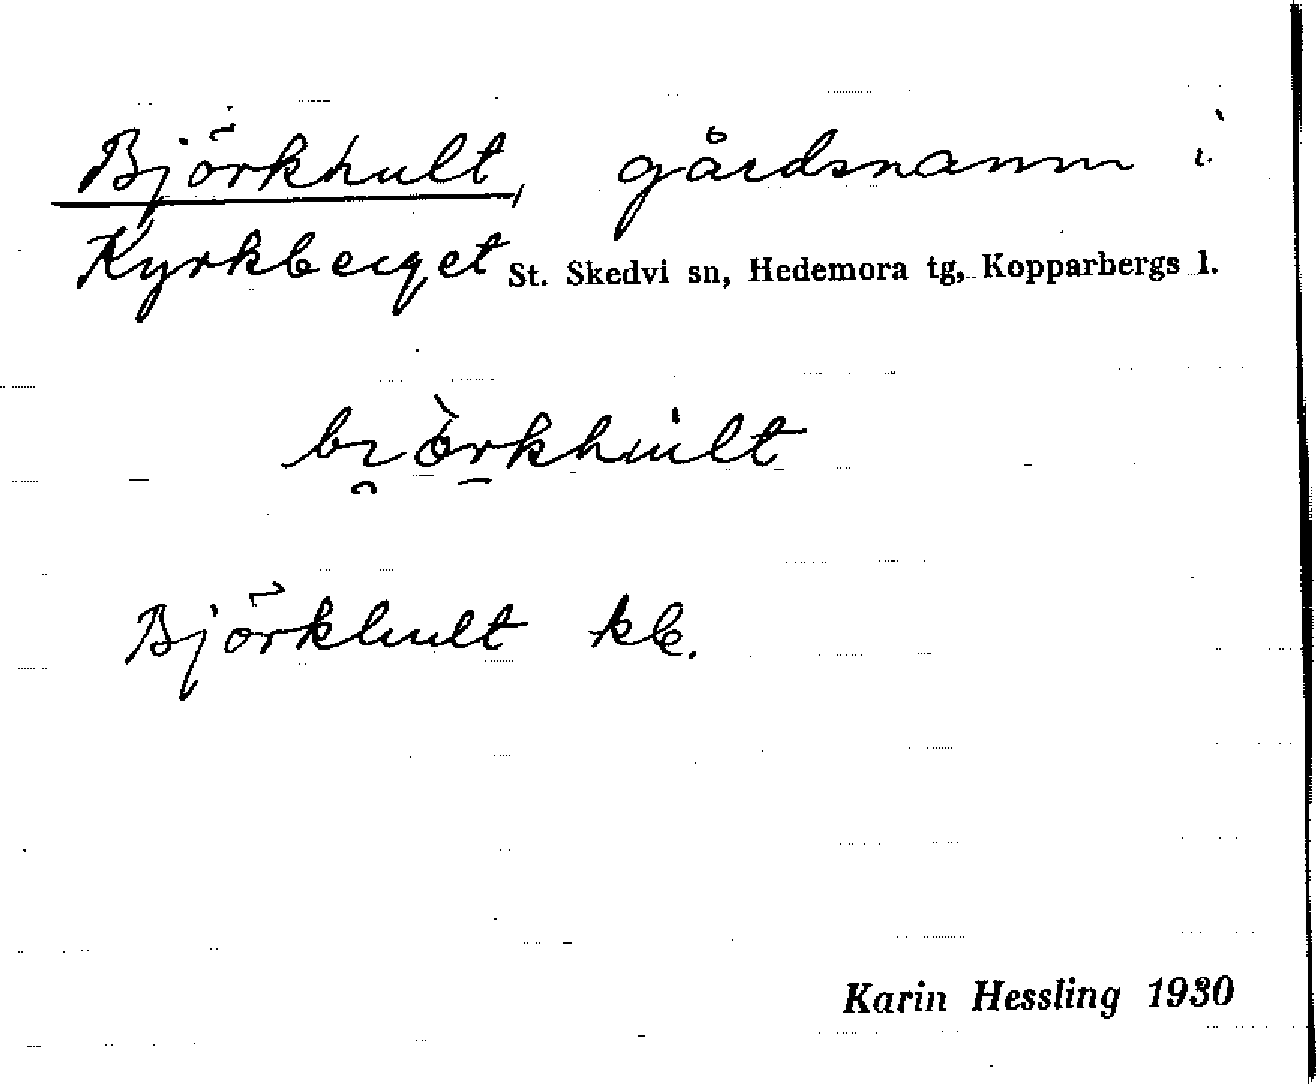 Björkhult, gårdsnamn i
Kyrkberget St. Skedvi sn, Hedemora tg, Kopparbergs l.
Björkhult kb.
Karin Hessling 1930